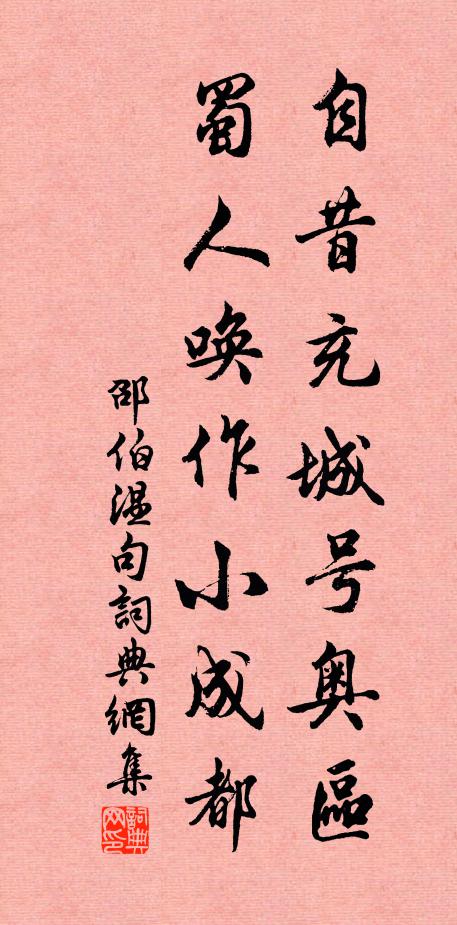 自昔充城号奥區
蜀人唤作小成都
邵伯温句詞典網集
詞典网印